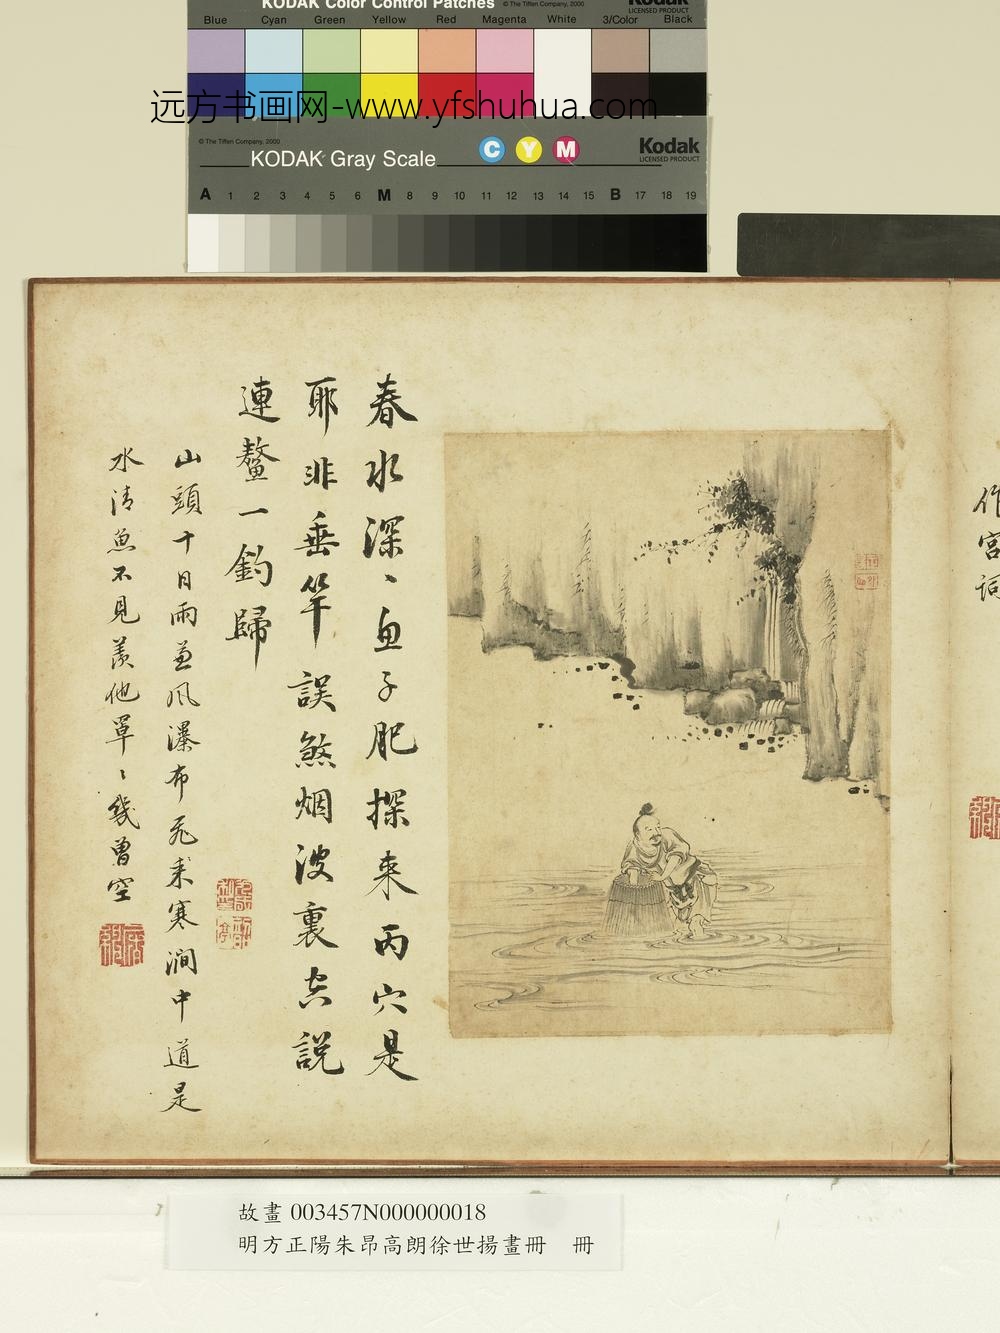 KODAK Color Control Patches © The Tiffen Company, 2000 Kodak
LICENSED PRODUCT
Blue Cyan Green Yellow Red Magenta White 3/Color Black
远方书画网-www.yfshuhua.com
© The Tiffen Company, 2000
KODAK Gray Scale C Y M Kodak
LICENSED PRODUCT
A 1 2 3 4 5 6 M 8 9 10 11 12 13 14 15 B 17 18 19
作宮詞
春水深〻魚子肥探來丙穴是
耶非垂竿誤煞烟波裏忘說
連鼇一釣歸
山頭十日雨兼風瀑布飛来寒澗中道是
水清魚不見羨他罩〻幾曾空
故畫 003457N000000018
明方正陽朱昂高朗徐世揚畫冊 冊